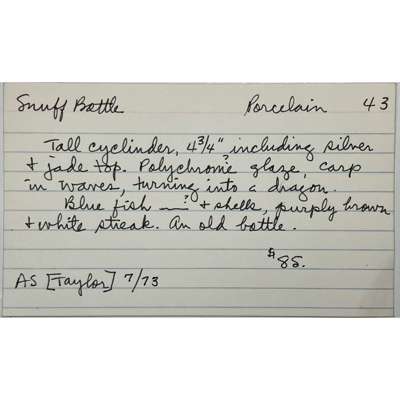 Snuff Bottle Porcelain 43
Tall cyclinder, 4 3/4" including silver
+ jade top. Polychrome glaze, carp
in waves, turning into a dragon.
Blue fish —? + shells, purply brown
+ white streak. An old bottle.
$85.
AS [Taylor] 7/73